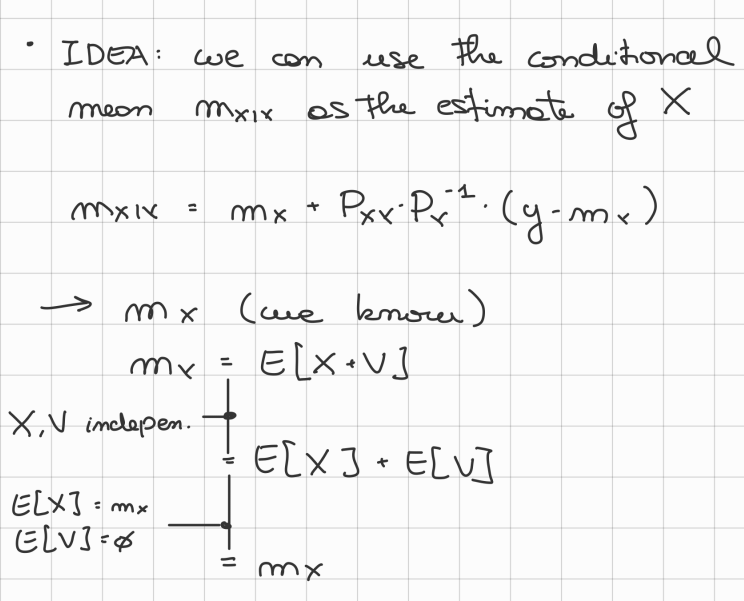 • IDEA: we can use the conditional
mean m_{X|Y} as the estimate of X
m_{X|Y} = m_X + P_{XY} · P_Y^{-1} · (y - m_Y)
→ m_X (we know)
m_Y = E[X + V]
X, V indepen.
= E[X] + E[V]
E[X] = m_X
E[V] = ∅
= m_X